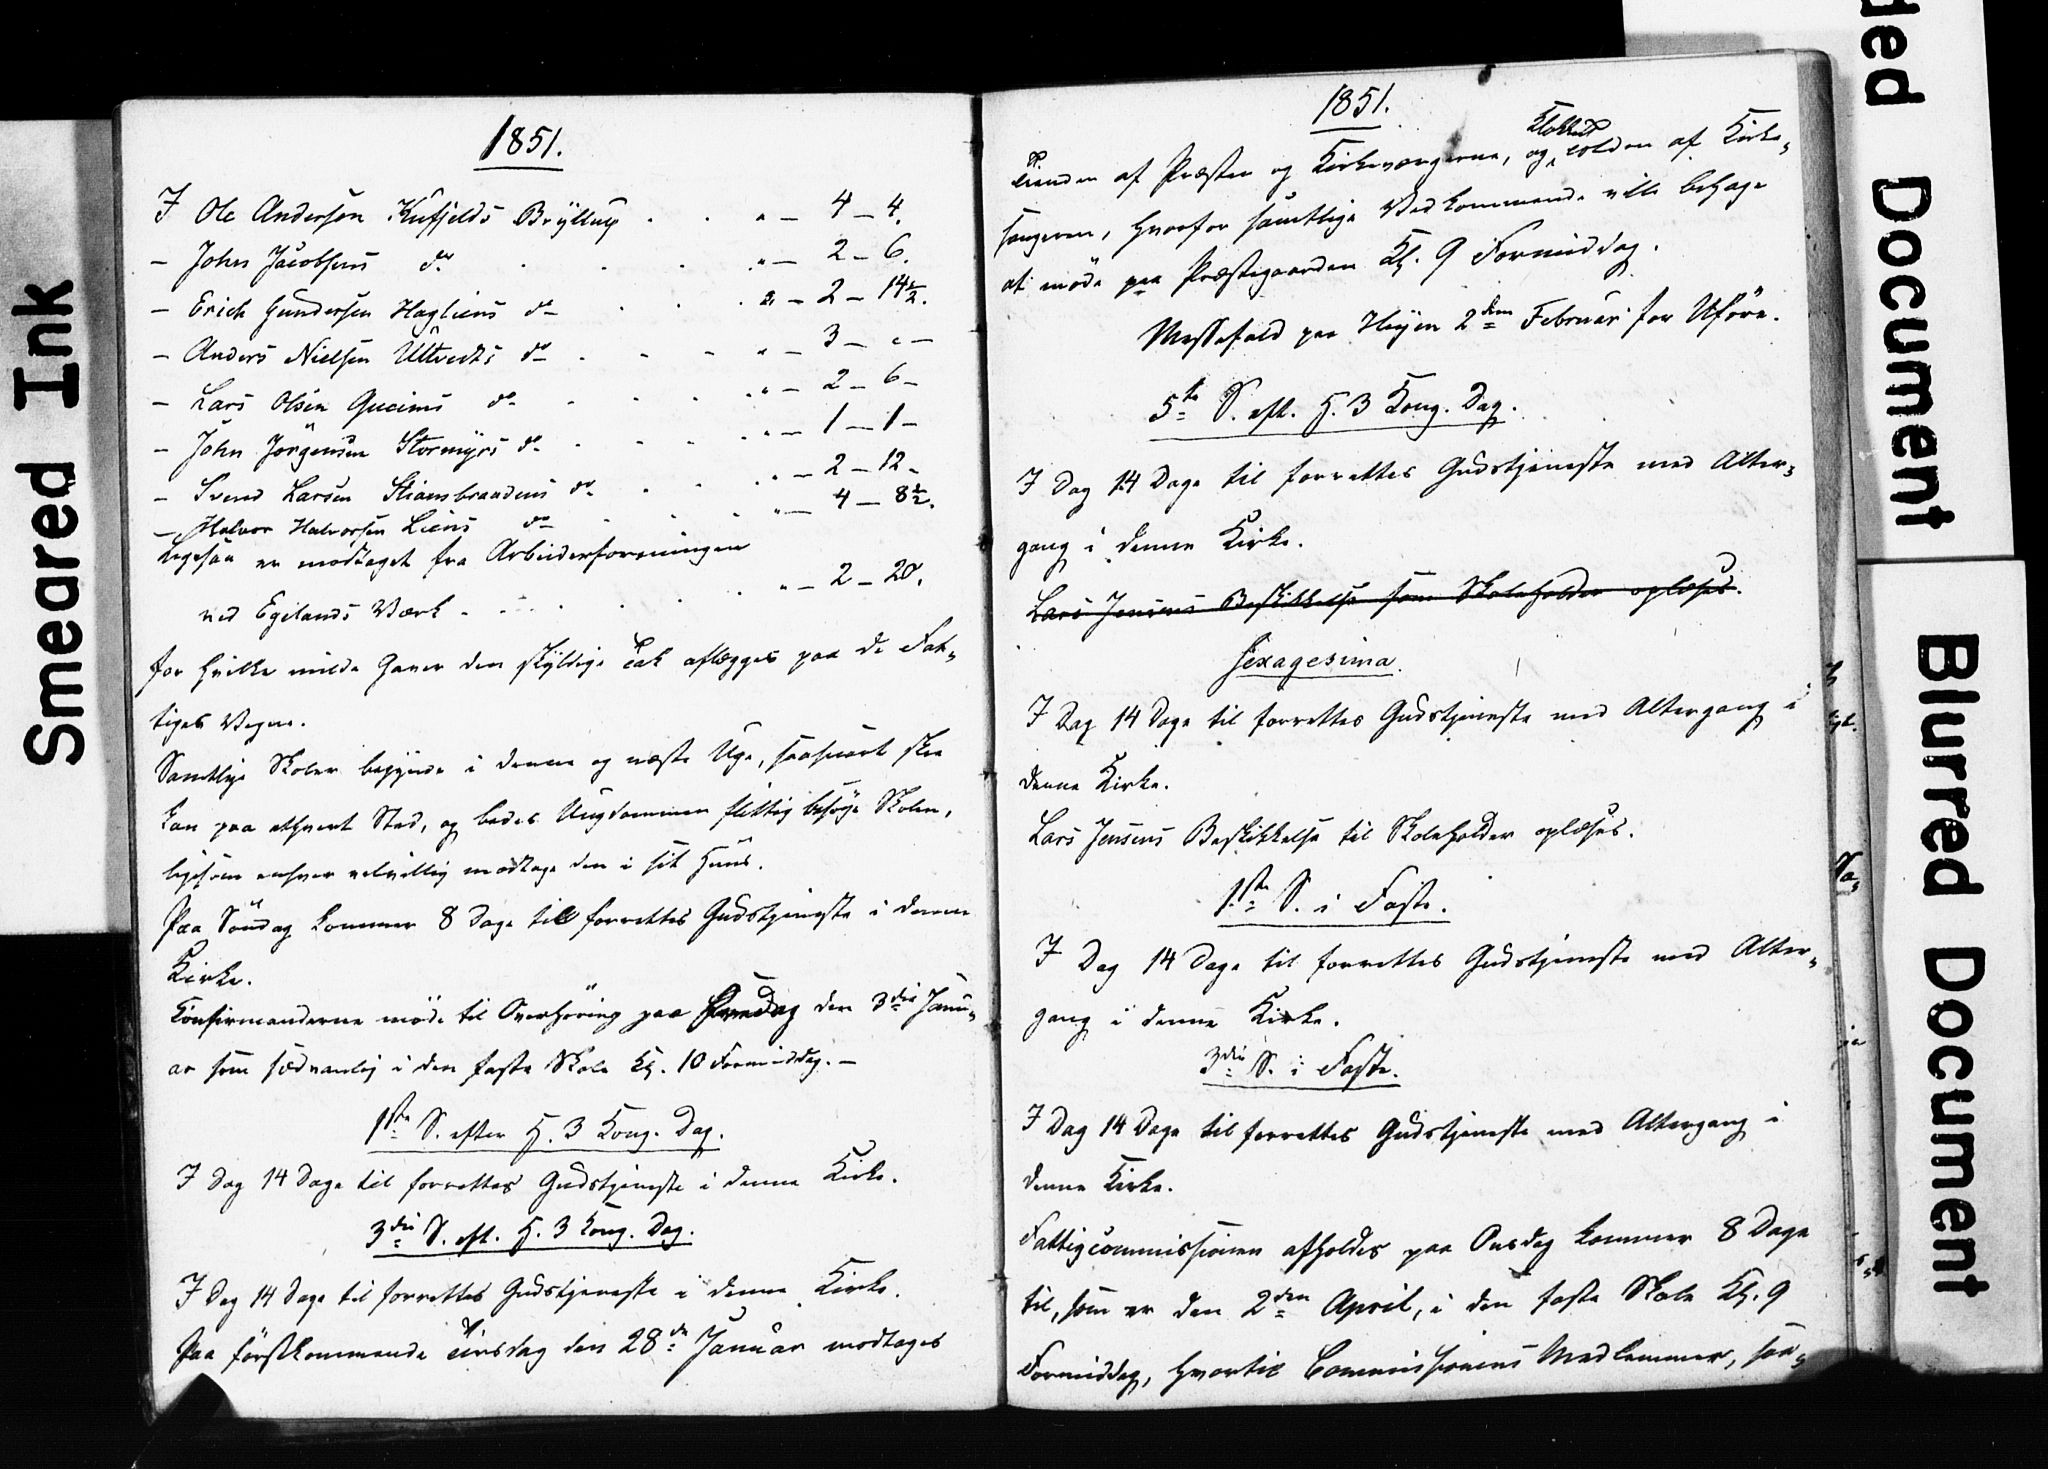 1851.
I Ole Andersen Kufjelds Bryllup . . " – 4 – 4.
– John Jacobsens do . . . . " – 2 – 6.
– Erich Gundersen Hagliens do . . . – 2 – 14½.
– Anders Nielsen Ultvedts do . . . " – 3 – " –
– Lars Olsen do . . . . " – 2 – 6 –
– John Jörgensen Stormyrs do . . . . " – 1 – 1 –
– Svend Larsen do . . . " – 2 – 12 –
– Halvor Halvorsen Liens do . . . " – 4 – 8½.
Ligesaa er modtaget fra Arbeiderforeningen
ved Egelands Værk . . . . . " – 2 – 20.
for hvilke milde Gaver den skyldige Tak aflægges paa de Fat-
tiges Vegne.
Samtlige Skoler begynde i denne og næste Uge, saasnart skee
kan paa ethvert Sted, og bedes Ungdommen flittig besøge Skolen,
ligesom enhver velvillig modtage den i sit Huus.
Paa Söndag kommer 8 Dage til forrettes Gudstjeneste i denne
Kirke.
Confirmanderne möde til Overhöring paa den 3die Janu-
ar som sædvanlig i den faste Skole Kl. 10 Formiddag. –
1ste S. efter H. 3 Kong. Dag.
I Dag 14 Dage til forrettes Gudstjeneste i denne Kirke.
3die S. eft. H. 3 Kong. Dag.
I Dag 14 Dage til forrettes Gudstjeneste i denne Kirke.
Paa förstkommende Tirsdag den 28de Januar modtages
1851.
Tienden af Præsten og Kirkeværgerne, og Klokker tolden af Kirke-
sangeren, hvorfor samtlige Vedkommende ville behage
at möde paa Præstegaarden Kl. 9 Formiddag.
Messefald paa Heyen 2den Februar for Uföre.
5te S. eft. H. 3 Kong. Dag.
I Dag 14 Dage til forrettes Gudstjeneste med Alter-
gang i denne Kirke.
Lars Jensens Beskikkelse som Skoleholder oplæses.
Sexagesima.
I Dag 14 Dage til forrettes Gudstjeneste med Altergang i
denne Kirke.
Lars Jensens Beskikkelse til Skoleholder oplæses.
1ste S. i Faste.
I Dag 14 Dage til forrettes Gudstjeneste med Alter-
gang i denne Kirke.
3die S. i Faste.
I Dag 14 Dage til forrettes Gudstjeneste med Altergang i
denne Kirke.
Fattigcommissionen afholdes paa Onsdag kommer 8 Dage
til, som er den 2den April, i den faste Skole Kl. 9
Formiddag, hvortil Commissionens Medlemmer, saa-
Smeared Ink
ded Document
Blurred Document